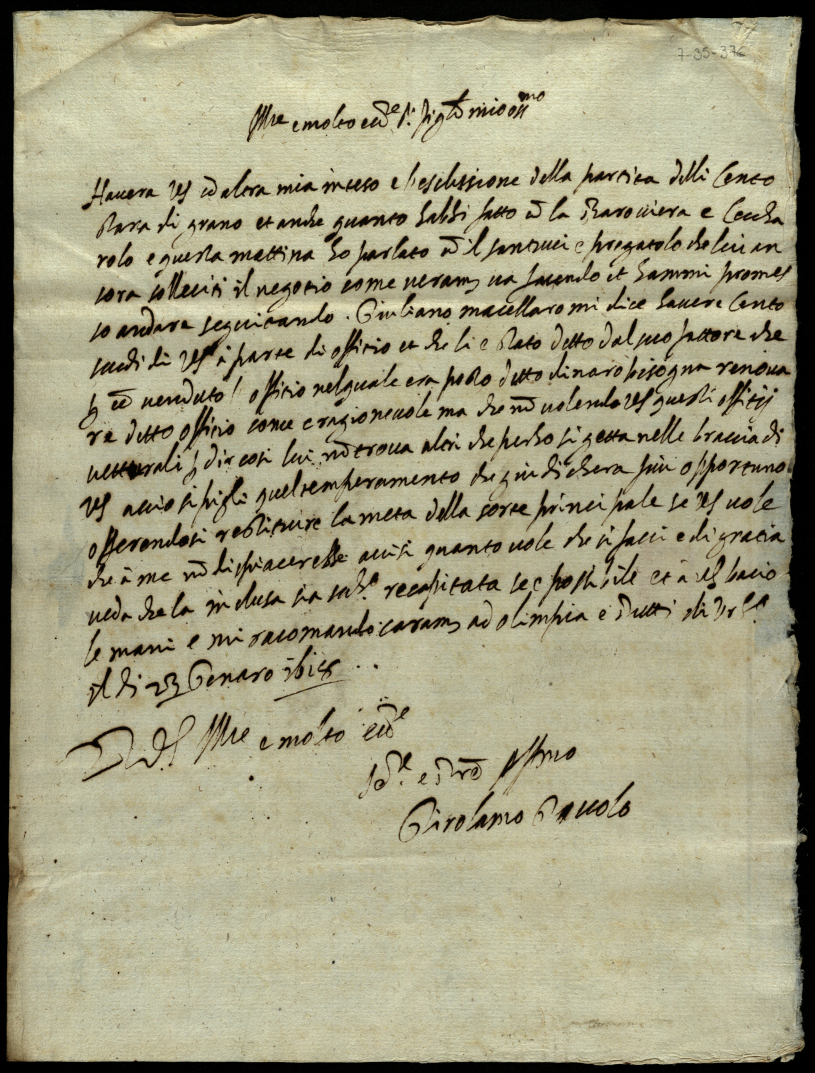 7-35-376
Ill.re e molto ecc.te S.r mio oss.mo
Havera VS cõ altra mia inteso l'esclusione della partita delli Cento
Rara di grano et anche quanto habbi fatto cõ la Baroviera e Cecha
rolo e questa mattina ho parlato cõ il santucci e pregatolo che lui an
cora solleciti il negotio come veram.te va facendo et hammi promes
so andare seguitando. Giuliano macellaro mi dice havere Cento
scudi di VS à parte di offitio et che li è stato detto dal suo fattore che
p eē venduto l'offitio nel quale era posto detto dinaro bisogna renova
re detto offitio come è ragionevole ma che nõ volendo VS questi offitij
p dir cosi lui nõ trova altri che perho si getta nelle braccia di
VS accio si pigli quel temperamento che giudichera piu opportuno
offerendosi restituire la metà della sorte principale se VS vole
che à me nõ dispiacerebbe avisi quanto vole che si facci e di gratia
veda che la inclusa sia recapitata se è possibile et à VS bacio
le mani e mi racomando caram.te ad olimpia e tutti di
il di 23 Genaro 1618
Di VS Ill.re e molto ecc.te
e aff.mo
Girolamo